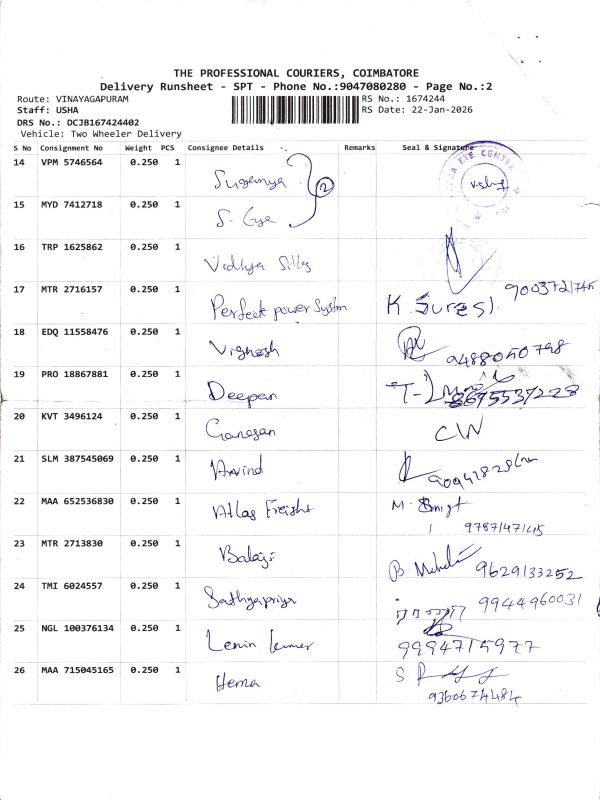 THE PROFESSIONAL COURIERS, COIMBATORE
Delivery Runsheet - SPT - Phone No.:9047080280 - Page No.:2
Route: VINAYAGAPURAM
Staff: USHA
DRS No.: DCJB167424402
Vehicle: Two Wheeler Delivery
RS No.: 1674244
RS Date: 22-Jan-2026
S No Consignment No Weight PCS Consignee Details Remarks Seal & Signature
14 VPM 5746564 0.250 1
Sugamya 2
EYE CENTRE
15 MYD 7412718 0.250 1
16 TRP 1625862 0.250 1
Vidhya Silks
17 MTR 2716157 0.250 1
Perfect power System K. Sures
18 EDQ 11558476 0.250 1
Vignesh 9488050798
19 PRO 18867881 0.250 1
Deepan 8675537228
20 KVT 3496124 0.250 1
Ganesan
21 SLM 387545069 0.250 1
Arvind
22 MAA 652536830 0.250 1
Atlas Freight
9787147145
23 MTR 2713830 0.250 1
Balaji 9629133252
24 TMI 6024557 0.250 1
Sathyapriya 9944960031
25 NGL 100376134 0.250 1
Lenin kumar 9994715977
26 MAA 715045165 0.250 1
Hema
9360674484